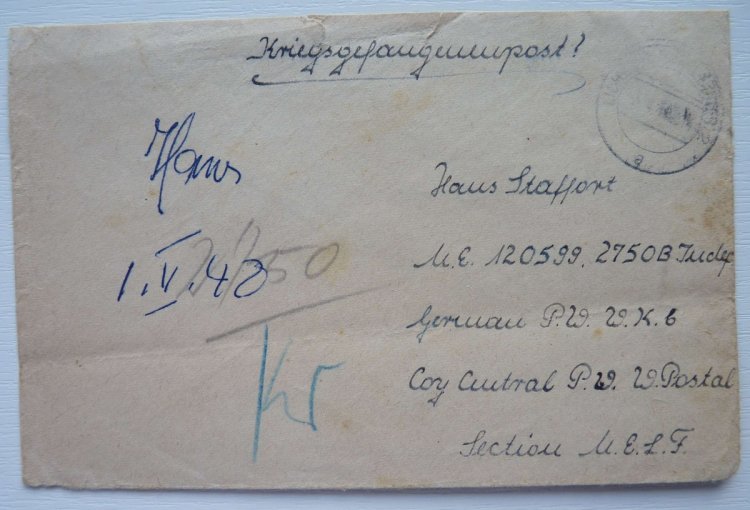 Kriegsgefangenenpost!
Hans
Hans Staffort
M.E. 120599, 2750B Indep
1.V.48
German P.W. W.K. 6
Coy Central P.W. W. Postal
Section M.E.L.F.